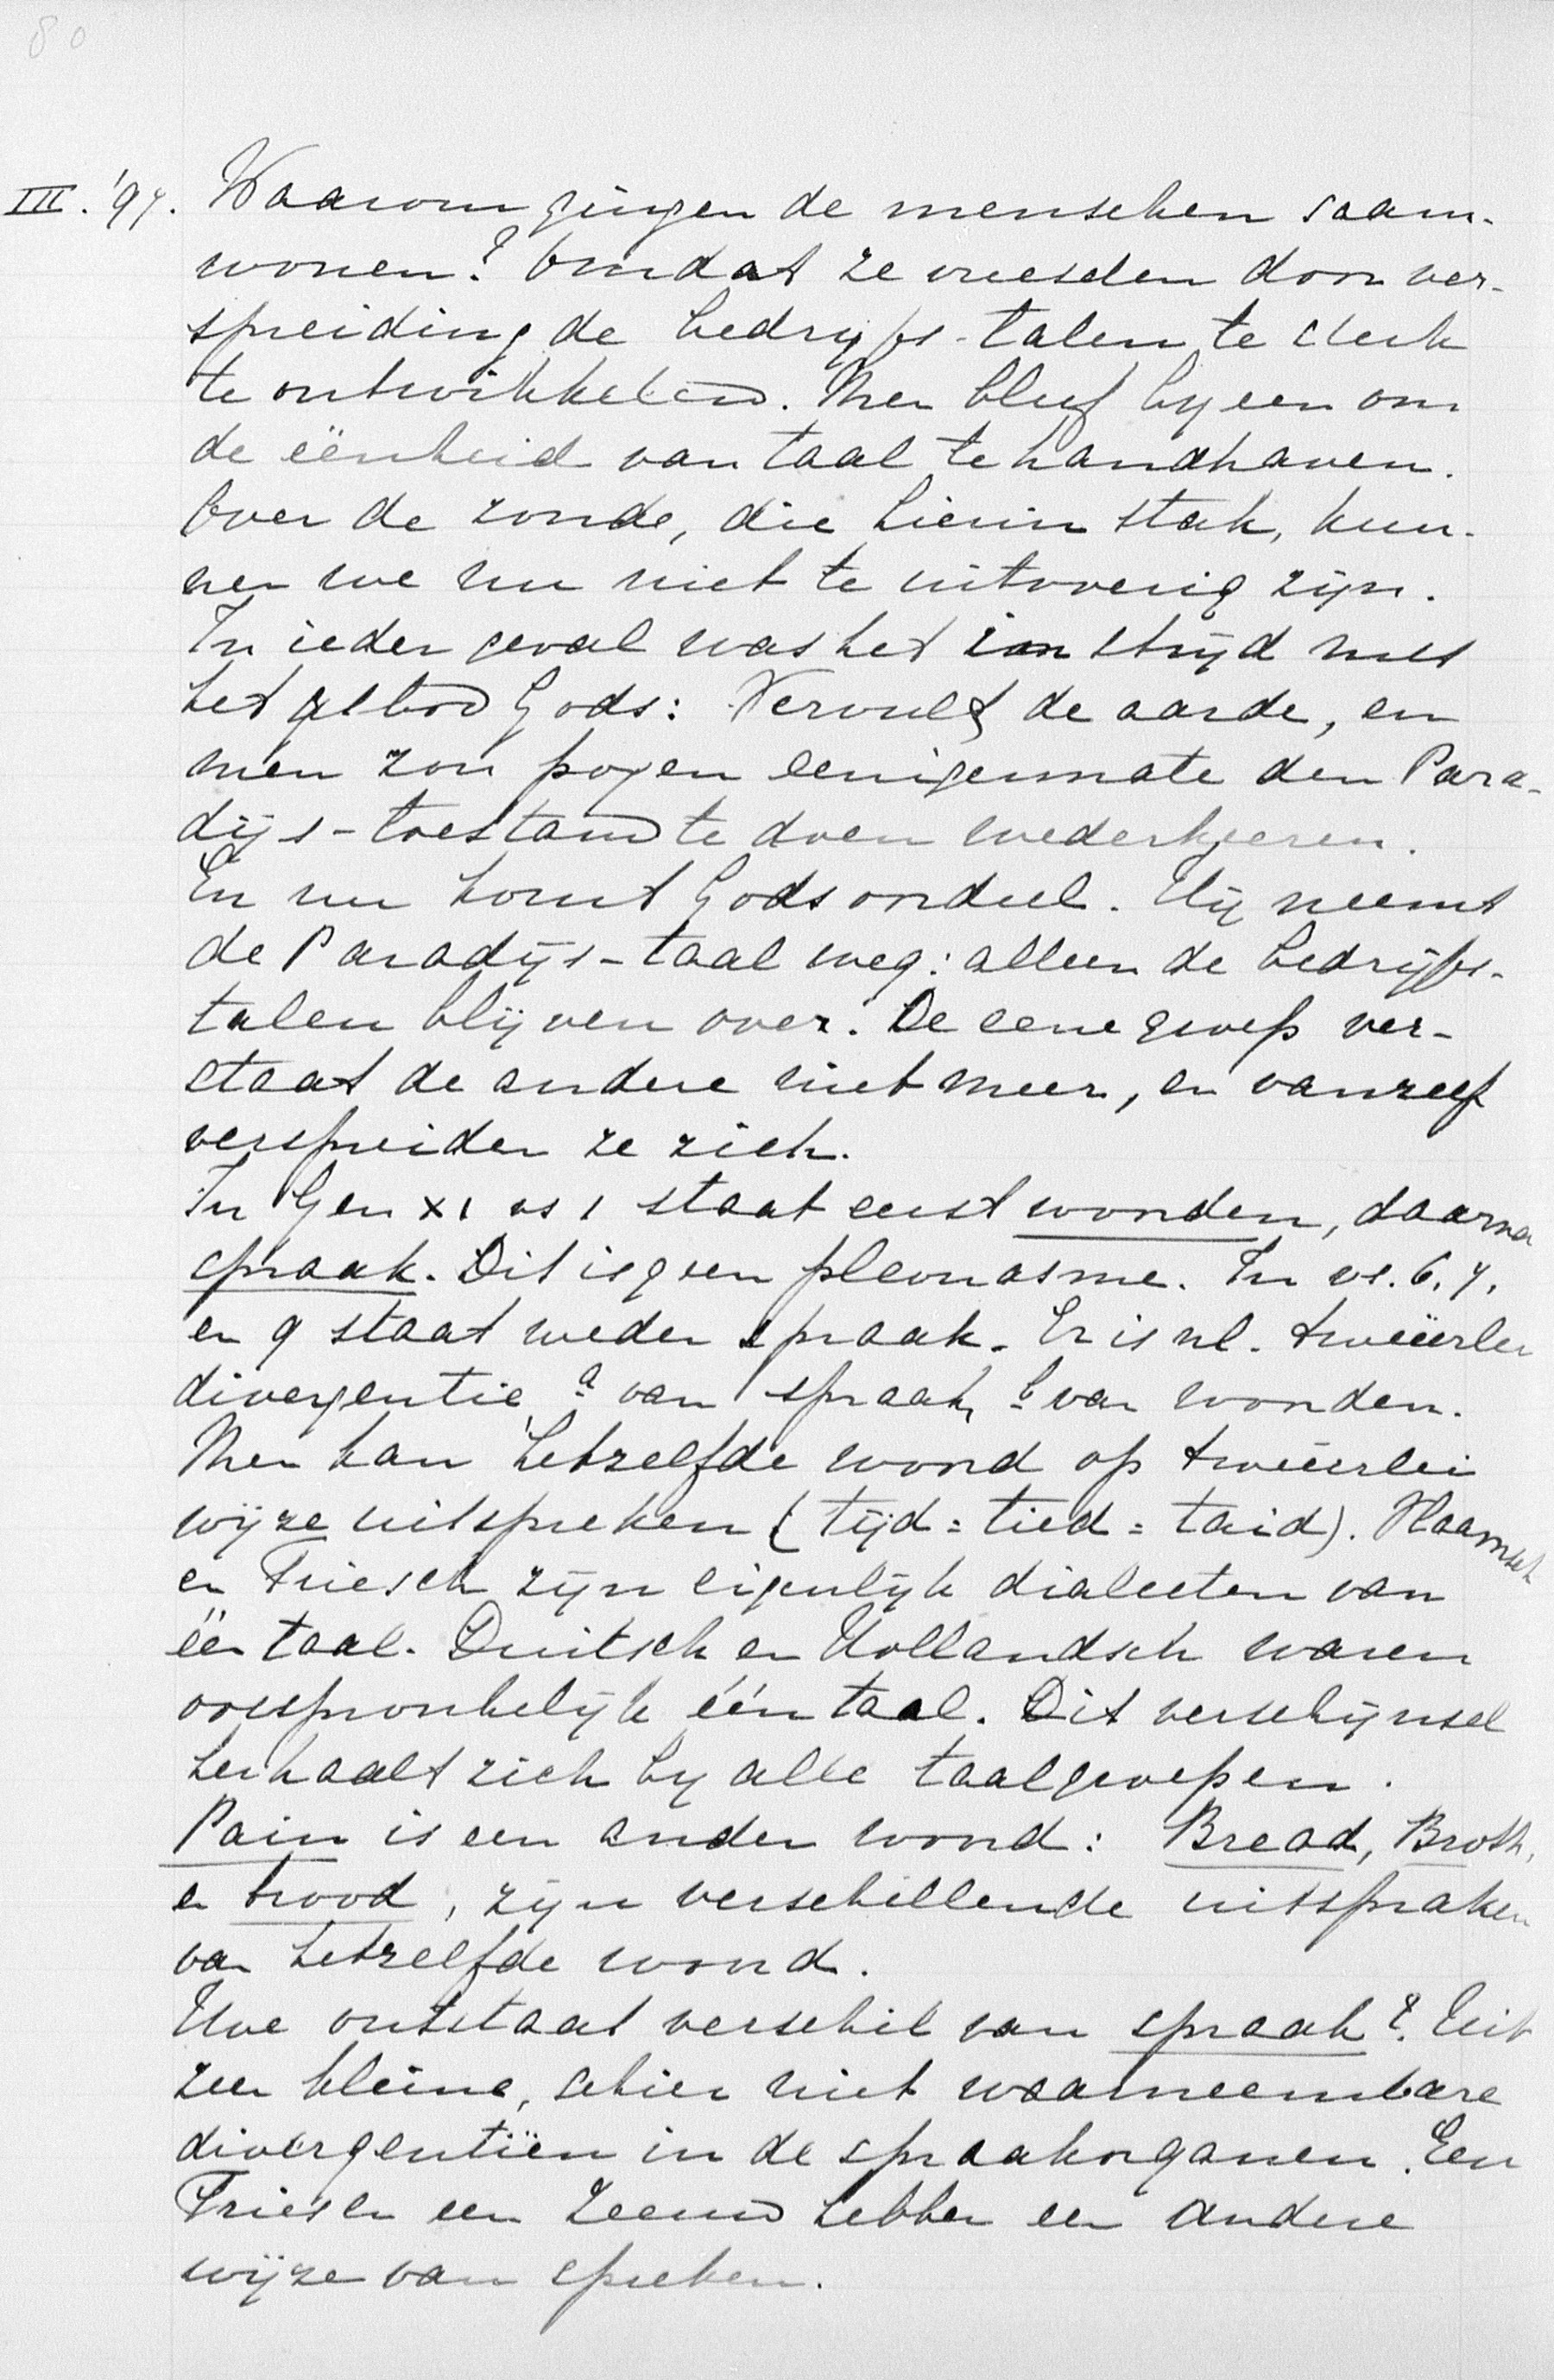 80
III. '97. Waarom gingen de menschen saam-
wonen? Omdat ze vreesden door ver-
spreiding de bedryfs-talen te sterk
te ontwikkelen. Men bleef byeen om
de ëenheid van taal te handhaven.
Over de zonde, die hierin stak, kun-
nen we nu niet te uitvoerig zijn.
In ieder geval was het in strijd met
het gebod Gods: Vervult de aarde, en
men zou pogen eenigermate den Para-
dijs-toestand te doen wederkeeren.
En nu komt Gods oordeel. Hij neemt
de Paradijs-taal weg: alleen de bedrijfs-
talen blijven over. De eene groep ver-
staat de andere niet meer, en vanzelf
verspreiden ze zich.
In Gen XI vs 1 staat eerst woorden, daarna
spraak. Dit is geen pleonasme. In vs. 6, 7,
en 9 staat weder spraak. Er is nl. tweëerlei
divergentie a van spraak, b van woorden.
Men kan hetzelfde woord op tweëerlei
wijze uitspreken (tijd = tied = taid). Vlaamsch
en Friesch zijn eigenlijk dialecten van
ëen taal. Duitsch en Hollandsch waren
oorspronkelijk één taal. Dit verschijnsel
herhaalt zich by alle taalgroepen.
Pain is een ander woord: Bread, Broth,
en brood, zijn verschillende uitspraken
van hetzelfde woord.
Hoe ontstaat verschil van spraak? Uit
zeer kleine, schier niet waarneembare
divergentiën in de spraakorganen. Een
Fries en een Zeeuw hebben een andere
wijze van spreken.